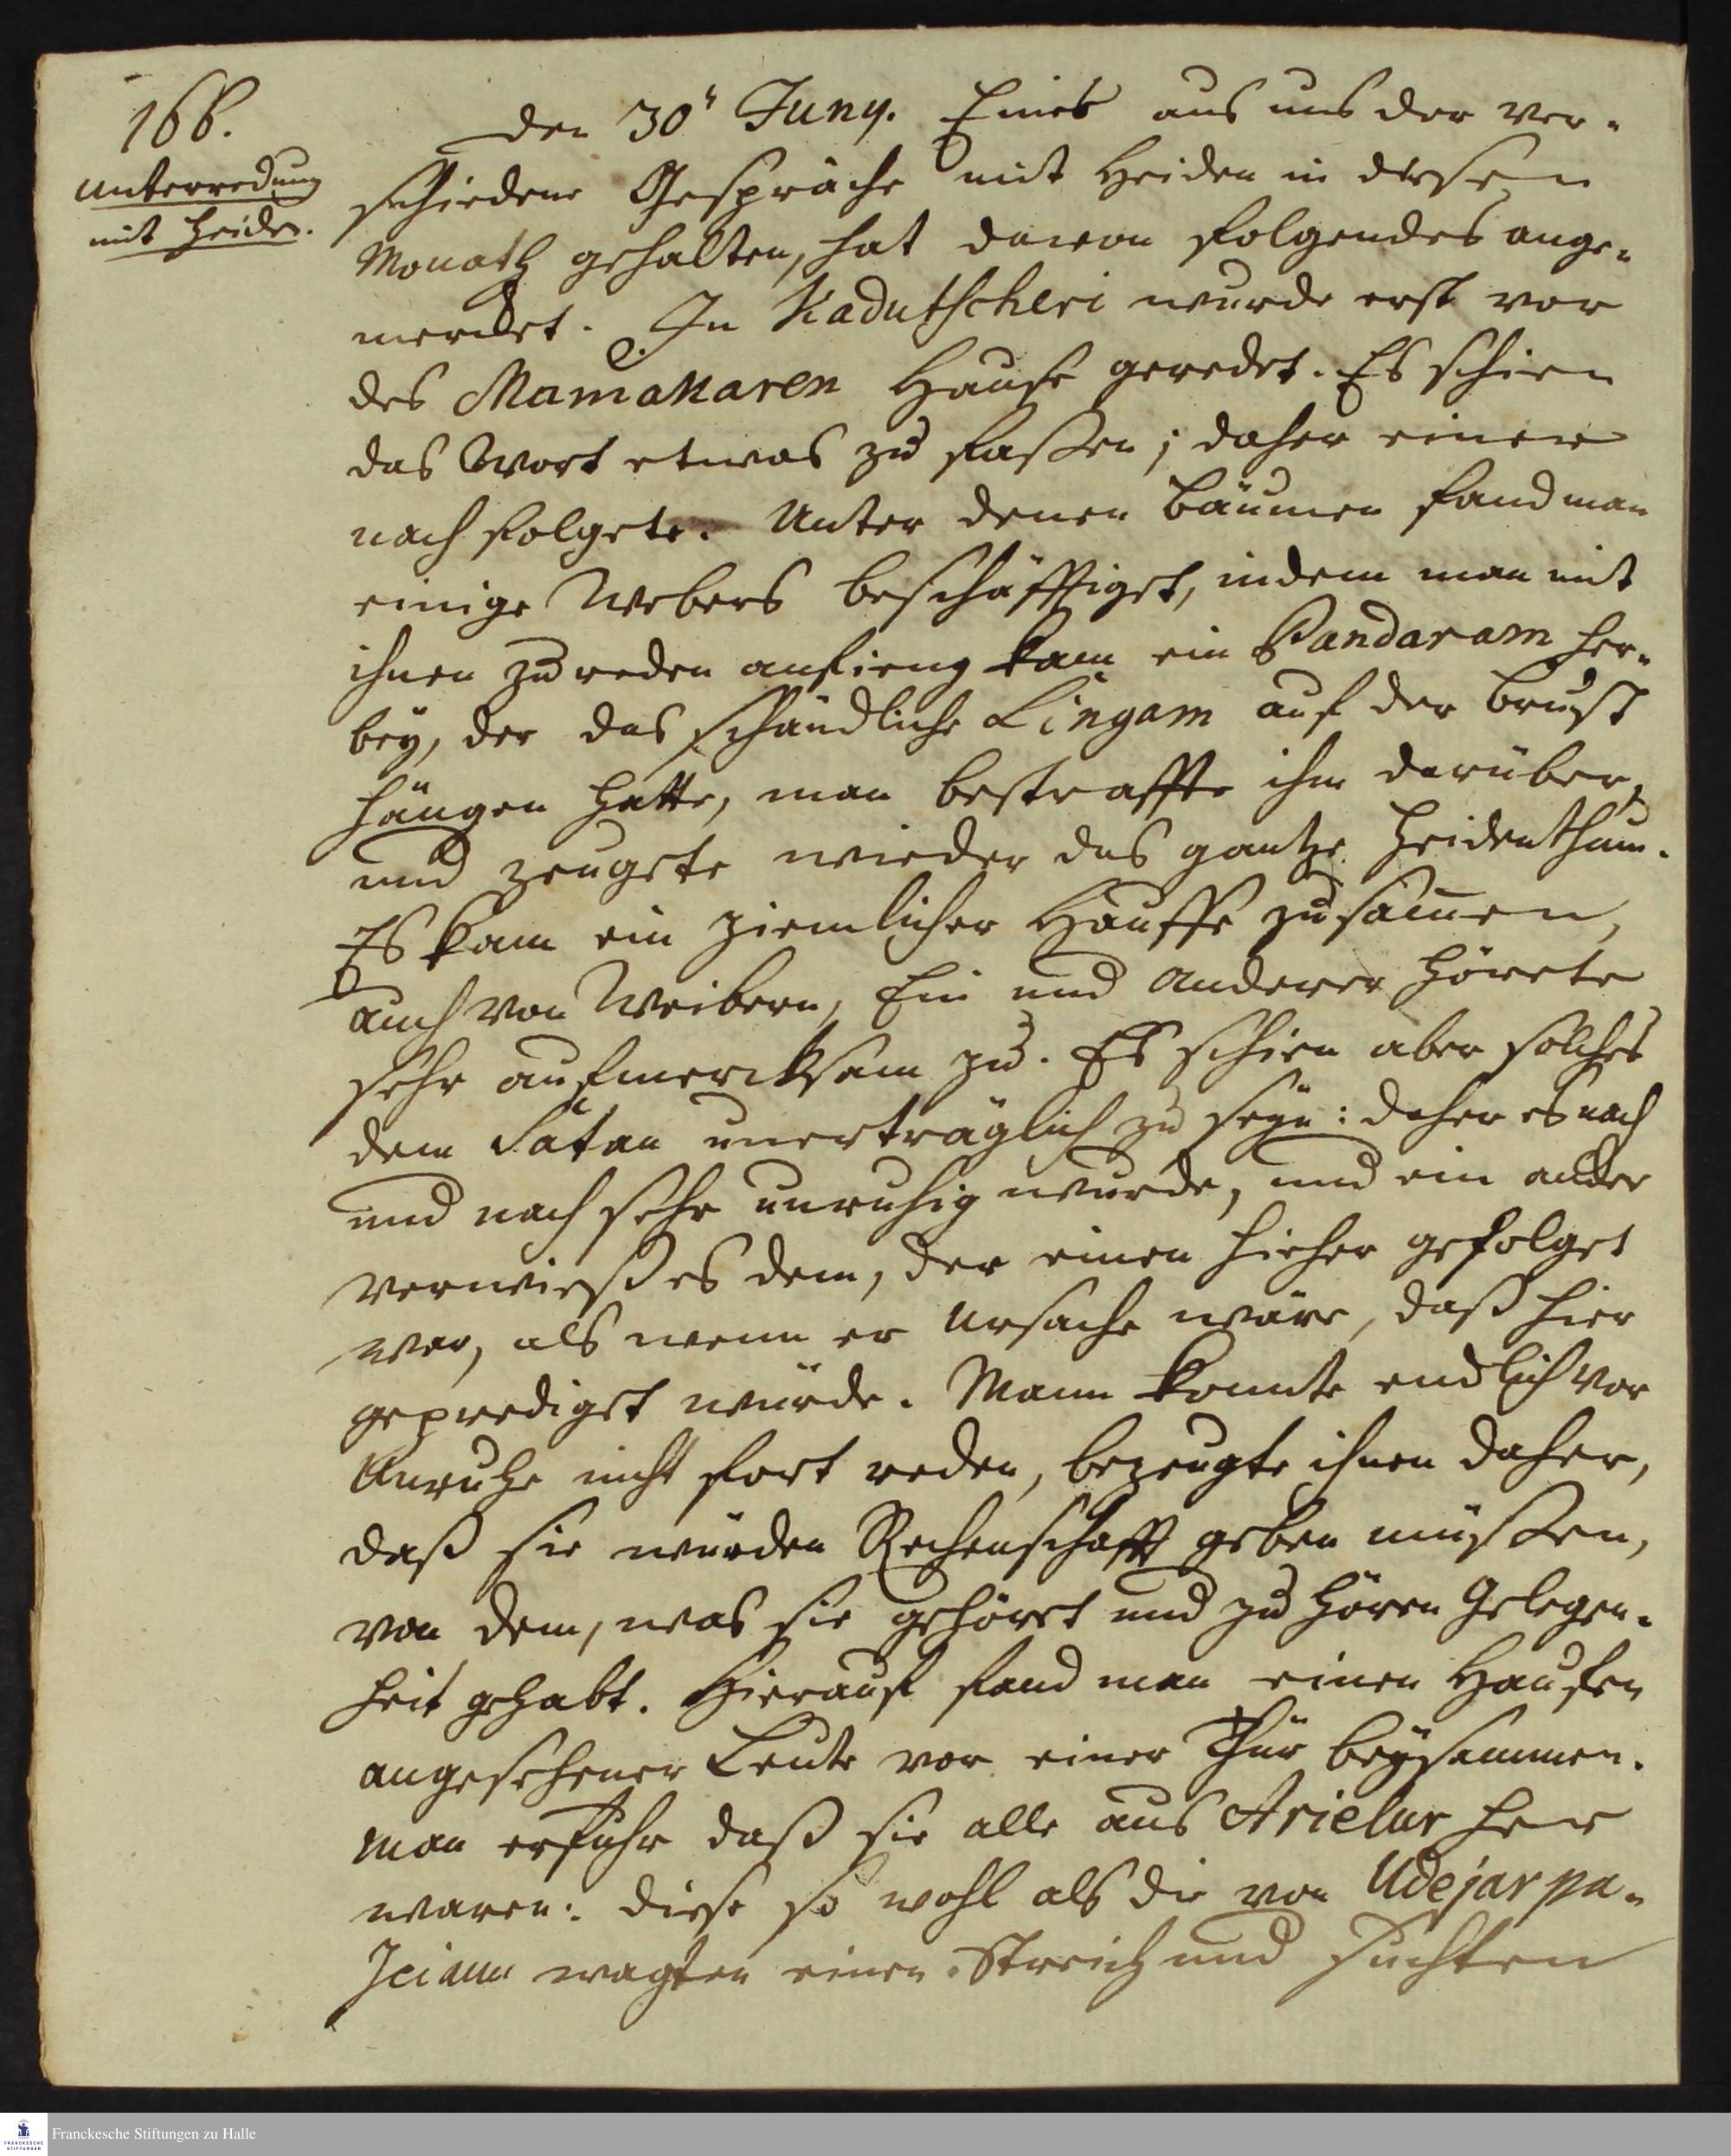 166.
Unterredung
mit Heiden.
den 30" Juny. Einer aus uns der ver-
schiedene Gespräche mit Heiden in diesen
Monath gehalten, hat davon folgendes ange-
mercket. In Kadutscheri wurde erst vor
des Maniakaren Hause geredet. Es schien
das Wort etwas zu faßen; daher einer
nach folgete. Unter denen Bäumen fand man
einige Webers beschäfftiget, indem man mit
ihnen zu reden anfieng kam ein Pandaram her-
bey, der das schändliche Lingam auf der Brust
hängen hatte, man bestraffte ihn darüber,
und zeugete wieder das gantze Heidenthum.
Es kam ein ziemlicher Hauffe zusamen,
auch von Weibern, Ein und anderer hörete
sehr aufmercksam zu. Es schien aber solches
dem Satan unerträglich zu seyn: daher es nach
und nach sehr unruhig wurde, und ein ander
verwieß es dem, der einen hieher gefolget
war, als wenn er Ursache wäre, daß hier
geprediget würde. Mann konnte endlich vor
Unruhe nicht fort reden, bezeugte ihnen daher,
daß sie würden Rechenschafft geben müßen,
von dem, was sie gehöret und zu hören Gelegen-
heit gehabt. Hierauf fand man einen Haufen
angesehener Leute vor einer Thür beysammen.
Man erfuhr daß sie alle aus Arielur her
waren: diese so wohl als die von Udejarpa-
leiam wagten einen Streich und suchten
Franckesche Stiftungen zu Halle